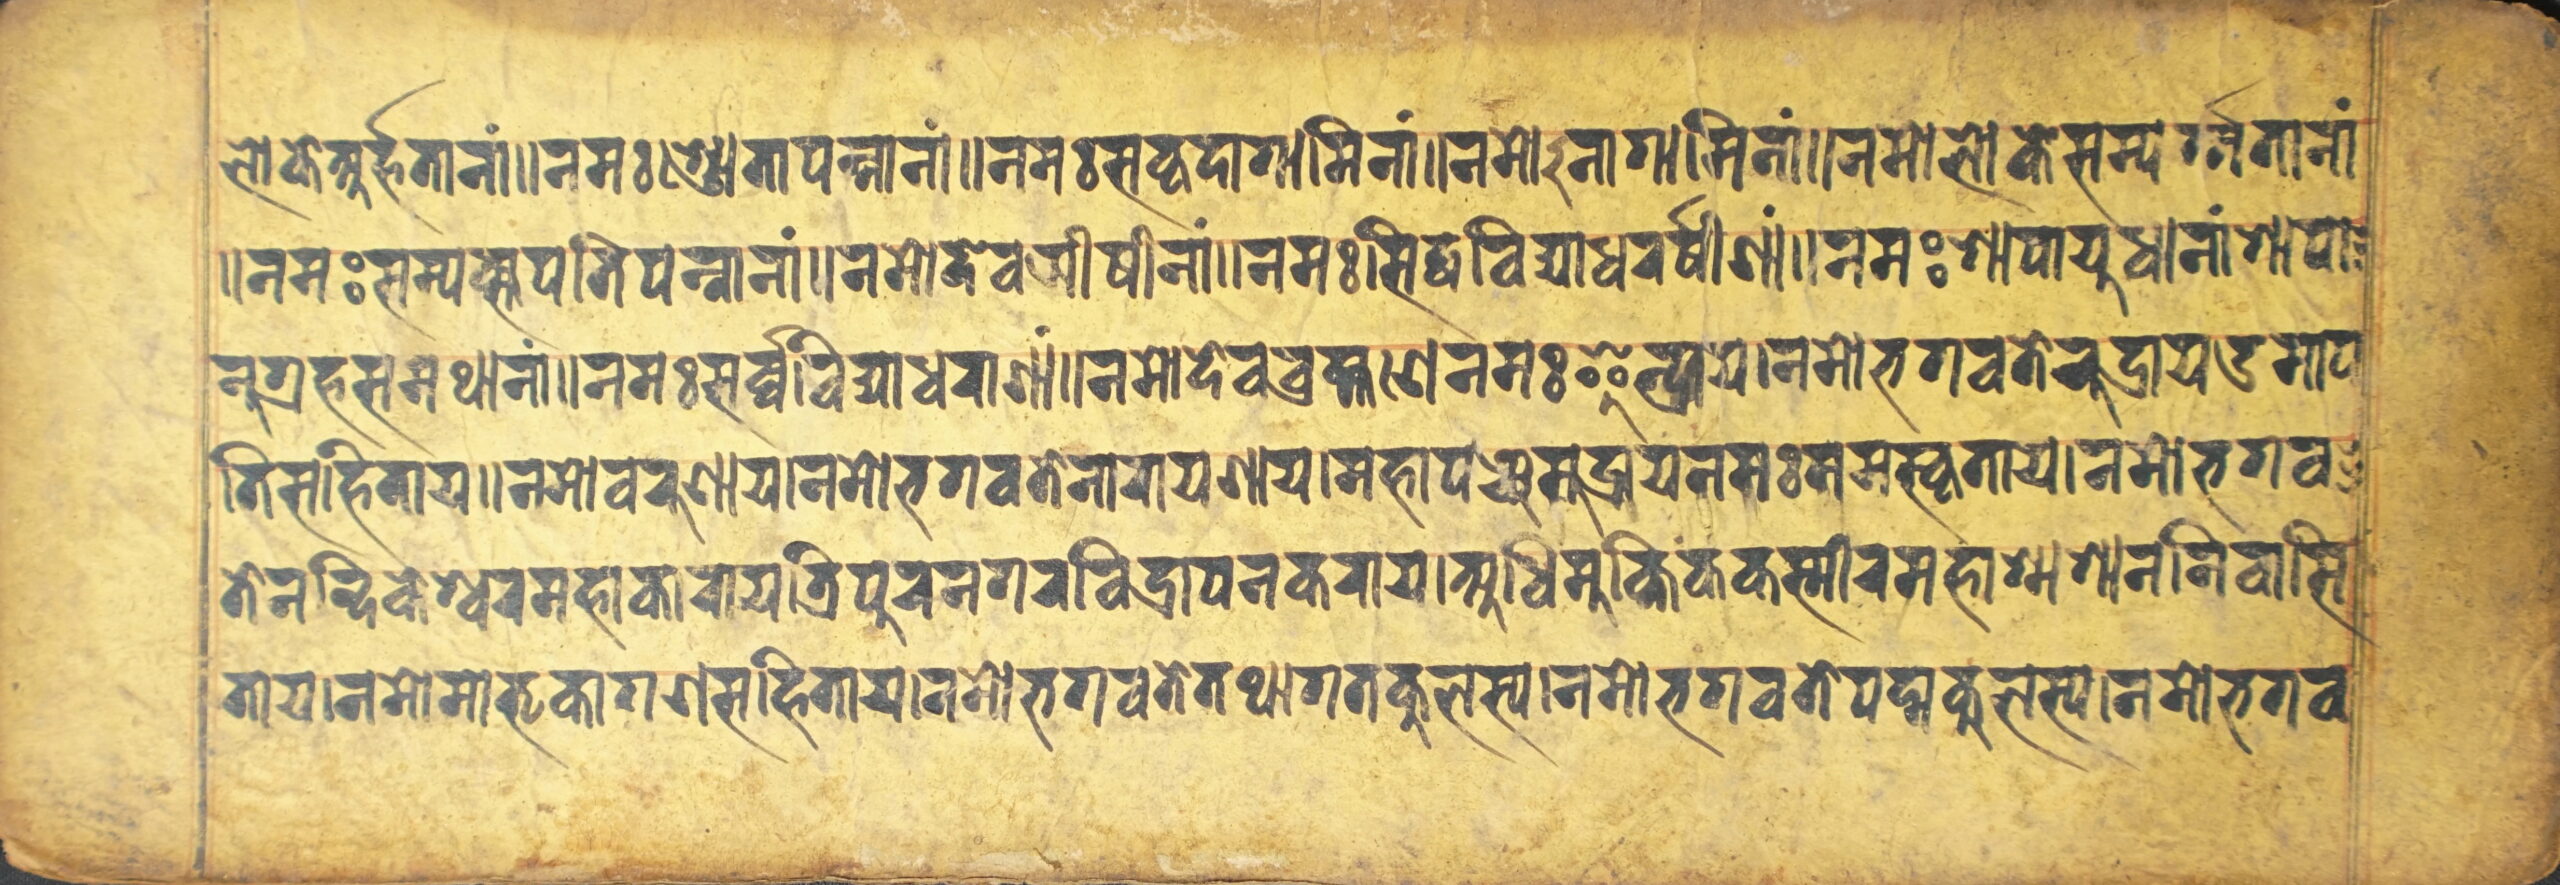 लोकेअर्हतानां॥नमःश्रोतापन्नानां॥नमःसकृदागामिनां॥नमोऽनागामिनां॥नमोलोकेसम्यर्ग्गतानां
॥नमःसम्यक्सप्रतिपन्नानां॥नमोदेवऋीषीनां॥नमःसिद्धविद्याधरर्षीणां॥नमःशापायुधानांशापा
नुग्रहसमथानां॥नमःसर्व्वविद्याधराणां॥नमोदेवब्रह्मणेनमःइन्द्राय।नमोभगवतेरुद्रायउमाप
तिसहिताय॥नमोवरुणाय।नमोभगवतेनारायणाय।महापञ्चमुद्रायनमःमस्कृताय।नमोभगव
तेनन्दिकेश्वरमहाकारायत्रिपुरनगरविद्रापनकराय।अधिमुक्तिककस्मीरमहाश्मशाननिवासि
ताय।नमोमातृकागणसहिताय।नमोभगवतेतथागतकुलस्य।नमोभगवतेपद्मकुलस्य।नमोभगव